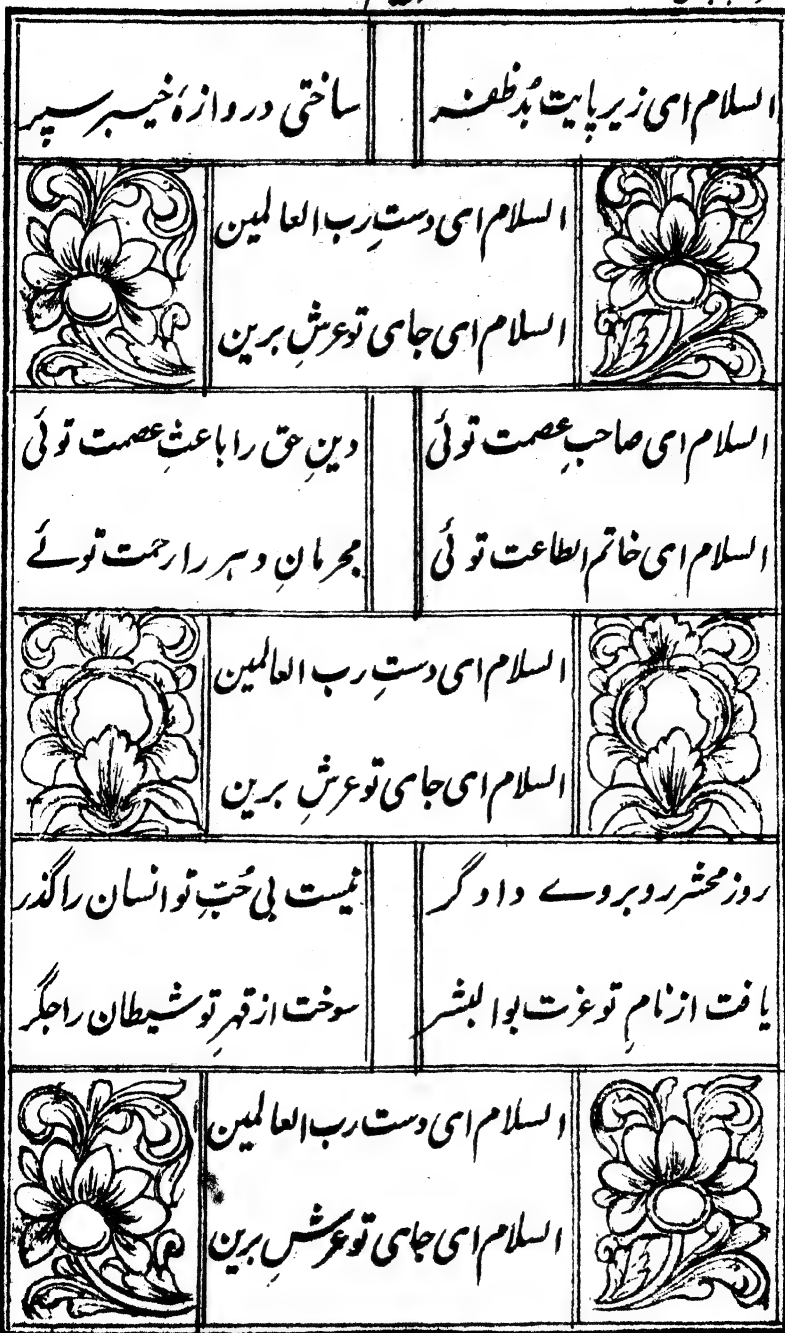 السلام ای زیر پایت بُد ظفر ساختی دروازهٔ خیبر سپر
السلام ای دستِ رب العالمین
السلام ای جای تو عرشِ برین
السلام ای صاحبِ عصمت توئی دینِ حق را باعثِ عصمت توئی
السلام ای خاتم الطاعت توئی مجرمانِ دهر را رحمت توئے
السلام ای دستِ رب العالمین
السلام ای جای تو عرشِ برین
روز محشر روبروے داوگر نیست بی حُبِّ تو انسان را گذر
یافت از نامِ تو عزت بوالبشر سوخت از قهرِ تو شیطان را جگر
السلام ای دست رب العالمین
السلام ای جای تو عرشِ برین